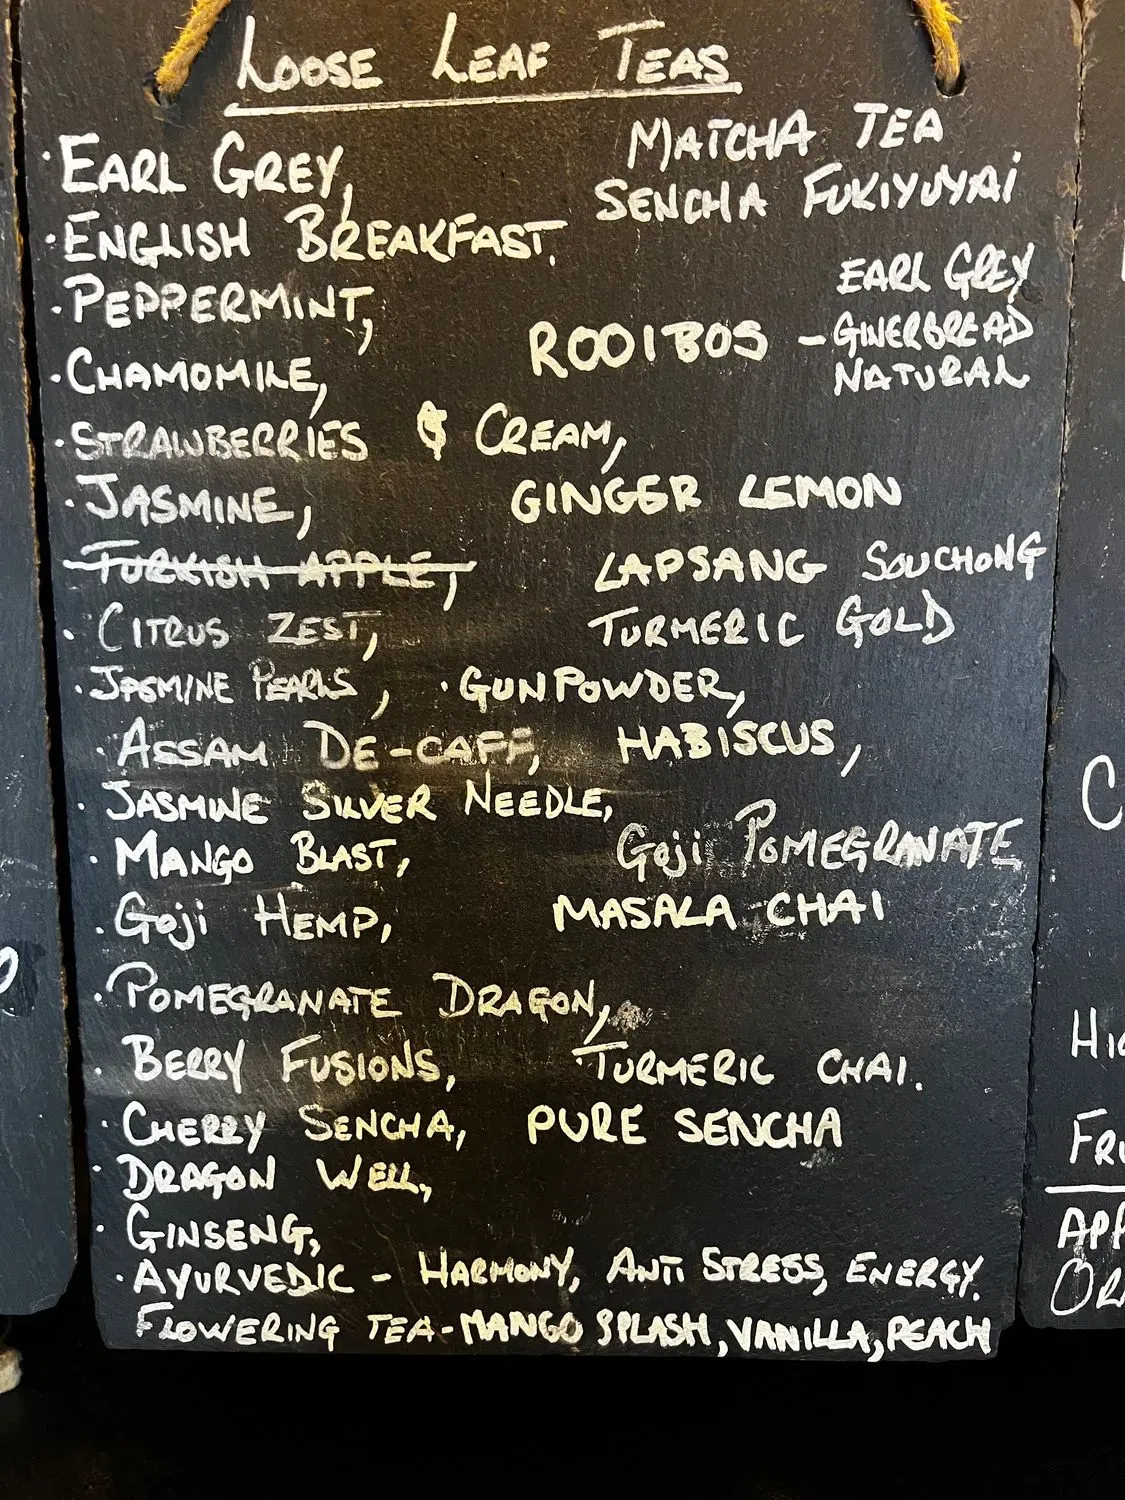 LOOSE LEAF TEAS
MATCHA TEA
· EARL GREY,
SENCHA FUKIYUYAI
· ENGLISH BREAKFAST.
EARL GREY
· PEPPERMINT,
ROOIBOS - GINERBREAD
NATURAL
· CHAMOMILE,
· STRAWBERRIES & CREAM,
· JASMINE, GINGER LEMON
TURKISH APPLE, LAPSANG SOUCHONG
· CITRUS ZEST, TURMERIC GOLD
· JASMINE PEARLS, · GUNPOWDER,
· ASSAM DE-CAFF, HABISCUS,
· JASMINE SILVER NEEDLE,
· MANGO BLAST, Goji POMEGRANATE
· Goji HEMP, MASALA CHAI
· POMEGRANATE DRAGON,
· BERRY FUSIONS, TURMERIC CHAI.
· CHERRY SENCHA, PURE SENCHA
· DRAGON WELL,
· GINSENG,
· AYURVEDIC - HARMONY, ANTI STRESS, ENERGY.
FLOWERING TEA - MANGO SPLASH, VANILLA, PEACH